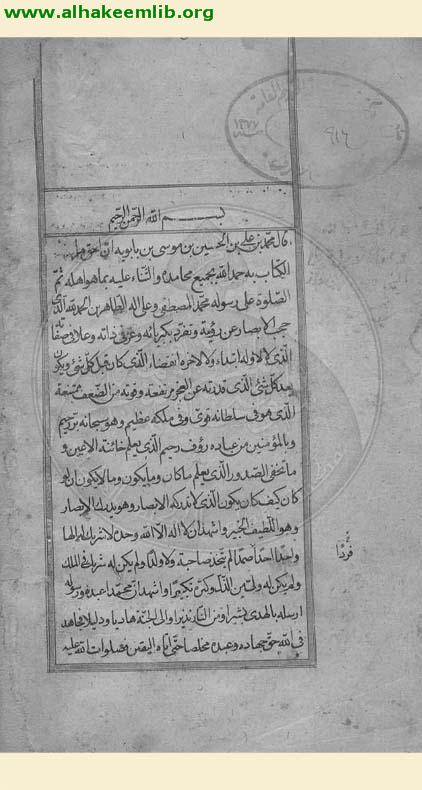 www.alhakeemlib.org
بسم الله الرحمن الرحيم
قال محمد بن علي بن الحسين بن موسى بن بابويه ان
الكتاب به حمد الله بجميع محامده والثناء عليه بما هو اهله ثم
الصلوة على رسوله محمد المصطفى وعلى اله الطاهرين الحمد لله الذى
حجب الابصار عن رؤيته وتفرد بكبريائه وعز فى ذاته وعلا فى صفاته
الذى لا لاوله ابتداء ولا لاخره انقضاء الذى كان قبل كل شئ ويكون
بعد كل شئ الذى قدرته عن العجز مرتفعة وقوته من الضعف ممتنعة
الذى هو فى سلطانه قوى وفى ملكه عظيم وهو سبحانه بر رحيم
وبالمؤمنين من عباده رؤف رحيم الذى يعلم خائنة الاعين و
ما تخفى الصدور الذى يعلم ما كان وما يكون وما لا يكون ان لو
كان كيف كان يكون الذى لا تدركه الابصار وهو يدرك الابصار
وهو اللطيف الخبير واشهد ان لا اله الا الله وحده لا شريك له الها
واحدا احدا صمدا لم يتخذ صاحبة ولا ولدا ولم يكن له شريك فى الملك
ولم يكن له ولى من الذل وكبره تكبيرا واشهد ان محمدا عبده ورسوله
ارسله بالهدى بشيرا ومن النار نذيرا والى الجنة هاديا ودليلا فجاهد
فى الله حق جهاده وعبده مخلصا حتى اتاه اليقين فصلوات الله عليه
فردا
٩١٦
١٣٧٧